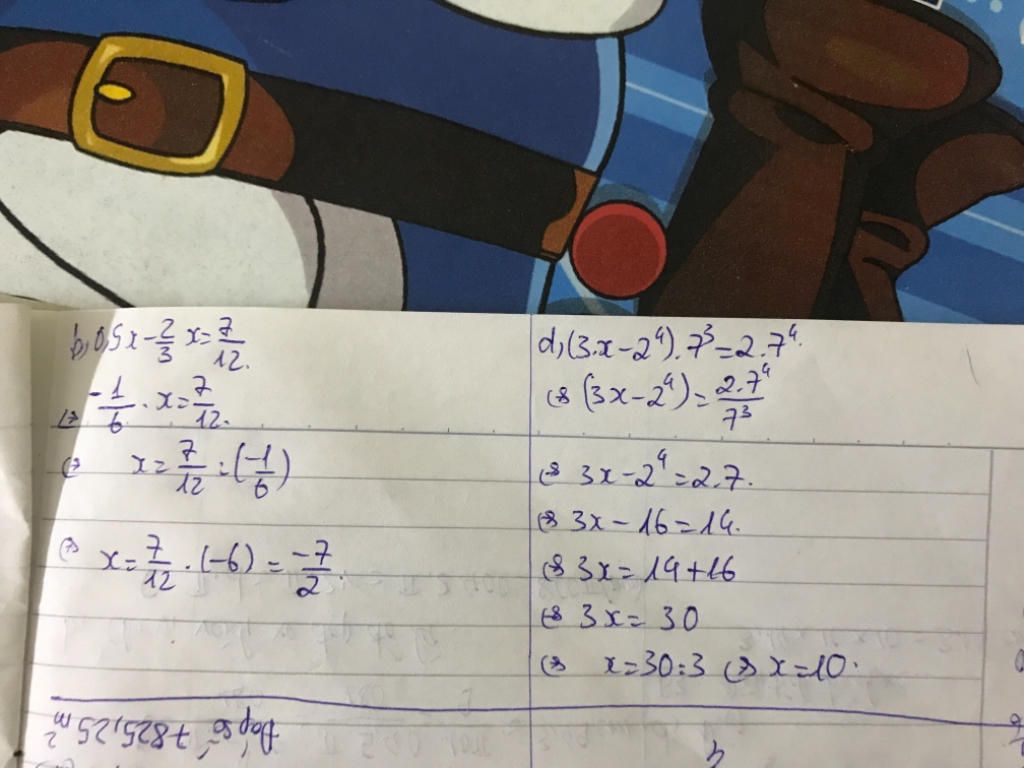 b, 0,5x - 2/3 x = 7/12.
(=) -1/6 . x = 7/12.
(=) x = 7/12 : (-1/6)
(=) x = 7/12 . (-6) = -7/2.
d, (3.x - 2⁴).7³ = 2.7⁴.
(=) (3x - 2⁴) = 2.7⁴/7³
(=) 3x - 2⁴ = 2.7.
(=) 3x - 16 = 14.
(=) 3x = 14 + 16
(=) 3x = 30
(=) x = 30:3 (=) x = 10.
Đáp số 7825,25 m²